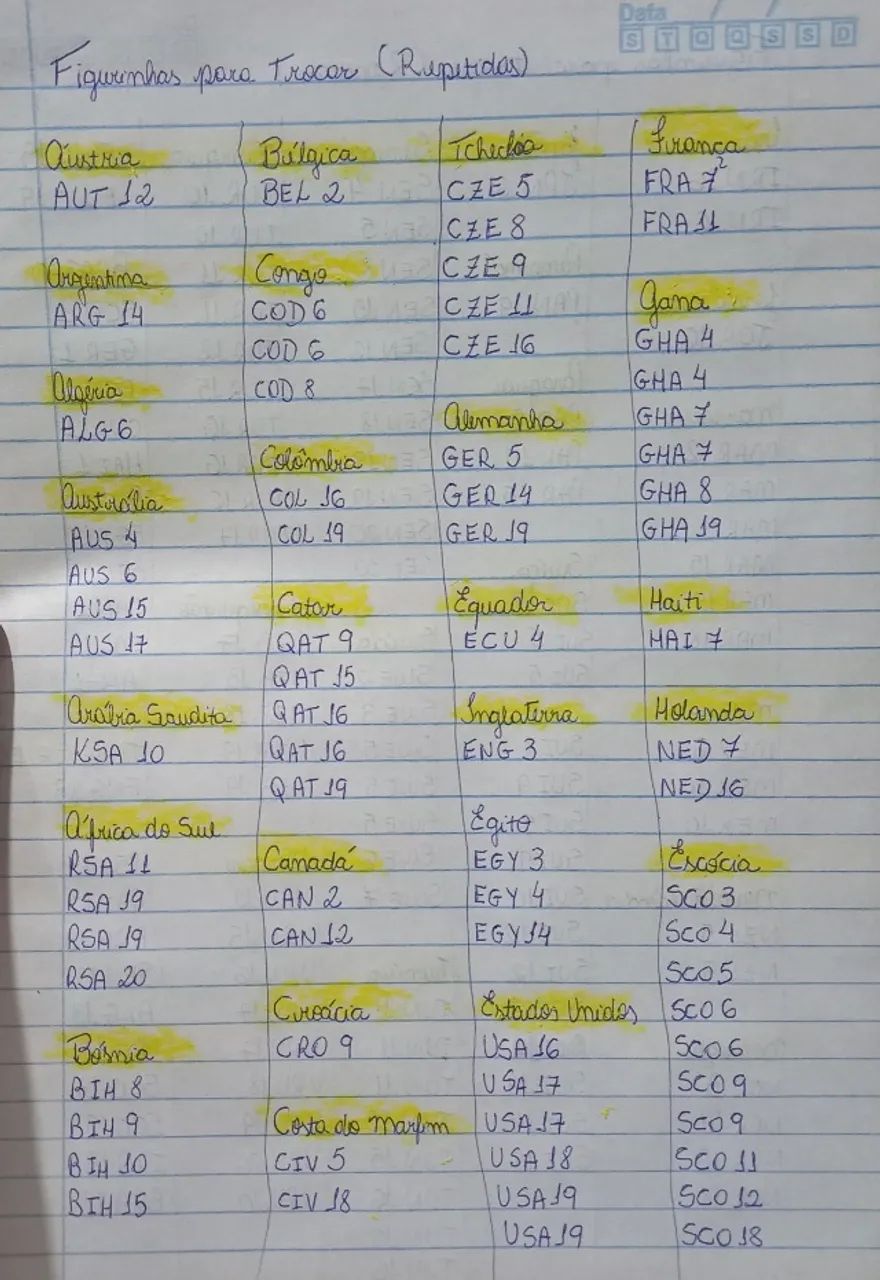 Data / /
S T Q Q S S D
Figurinhas para Trocar (Repetidas)
Áustria
AUT 12
Argentina
ARG 14
Algéria
ALG 6
Austrália
AUS 4
AUS 6
AUS 15
AUS 17
Arábia Saudita
KSA 10
África do Sul
RSA 11
RSA 19
RSA 19
RSA 20
Bósnia
BIH 8
BIH 9
BIH 10
BIH 15
Bélgica
BEL 2
Congo
COD 6
COD 6
COD 8
Colômbia
COL 16
COL 19
Catar
QAT 9
QAT 15
QAT 16
QAT 16
QAT 19
Canadá
CAN 2
CAN 12
Croácia
CRO 9
Costa do Marfim
CIV 5
CIV 18
Tchechia
CZE 5
CZE 8
CZE 9
CZE 11
CZE 16
Alemanha
GER 5
GER 14
GER 19
Equador
ECU 4
Inglaterra
ENG 3
Egito
EGY 3
EGY 4
EGY 14
Estados Unidos
USA 16
USA 17
USA 17
USA 18
USA 19
USA 19
França
FRA 7²
FRA 11
Gana
GHA 4
GHA 4
GHA 7
GHA 7
GHA 8
GHA 19
Haiti
HAI 7
Holanda
NED 7
NED 16
Escócia
SCO 3
SCO 4
SCO 5
SCO 6
SCO 6
SCO 9
SCO 9
SCO 11
SCO 12
SCO 18